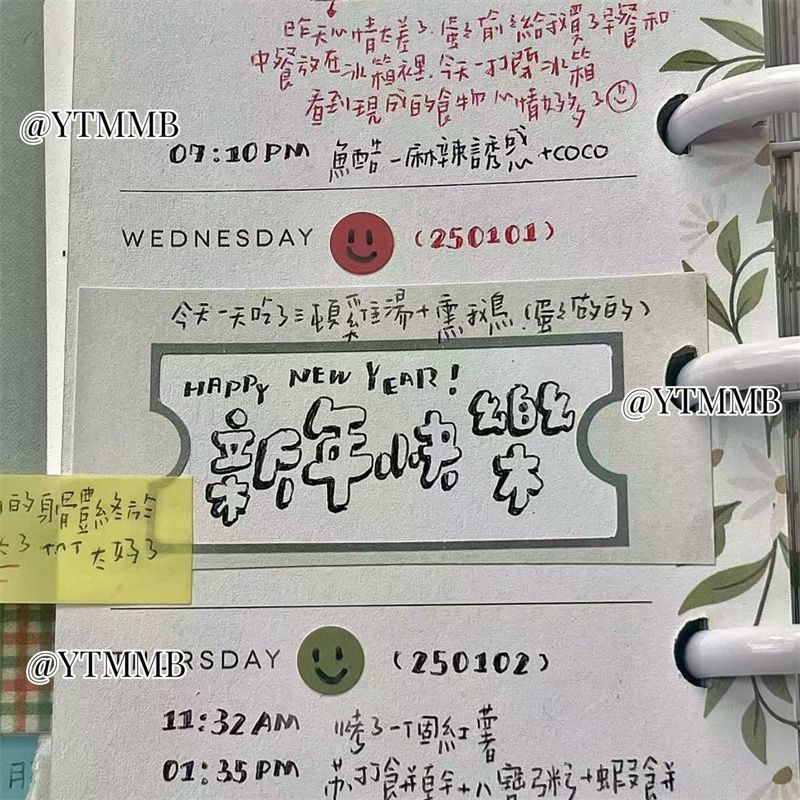 昨天心情太差了.蛋蛋偷偷給我買了早餐和
中餐放在冰箱裡.今天一打開冰箱
看到現成的食物心情好多了
@YTMMB
07:10PM 魚酷-麻辣誘惑+COCO
WEDNESDAY (250101)
今天一天吃了三頓雞湯+熏鵝(蛋蛋做的)
HAPPY NEW YEAR!
@YTMMB
新年快樂
的身體終於
了 太好了
@YTMMB
RSDAY (250102)
11:32AM 烤了一個紅薯
01:35PM 苏打餅乾+八寶粥+蝦餅
月